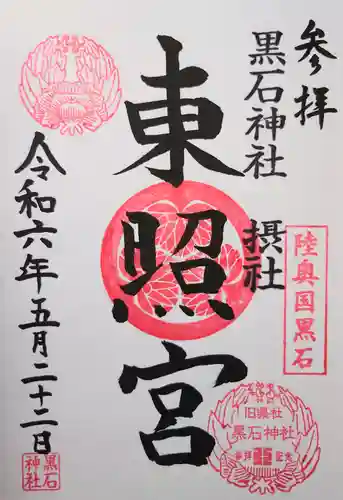 参拝
黒石神社
摂社
陸奥国黒石
東照宮
旧県社
黒石神社
令和六年五月二十二日
黒石
神社